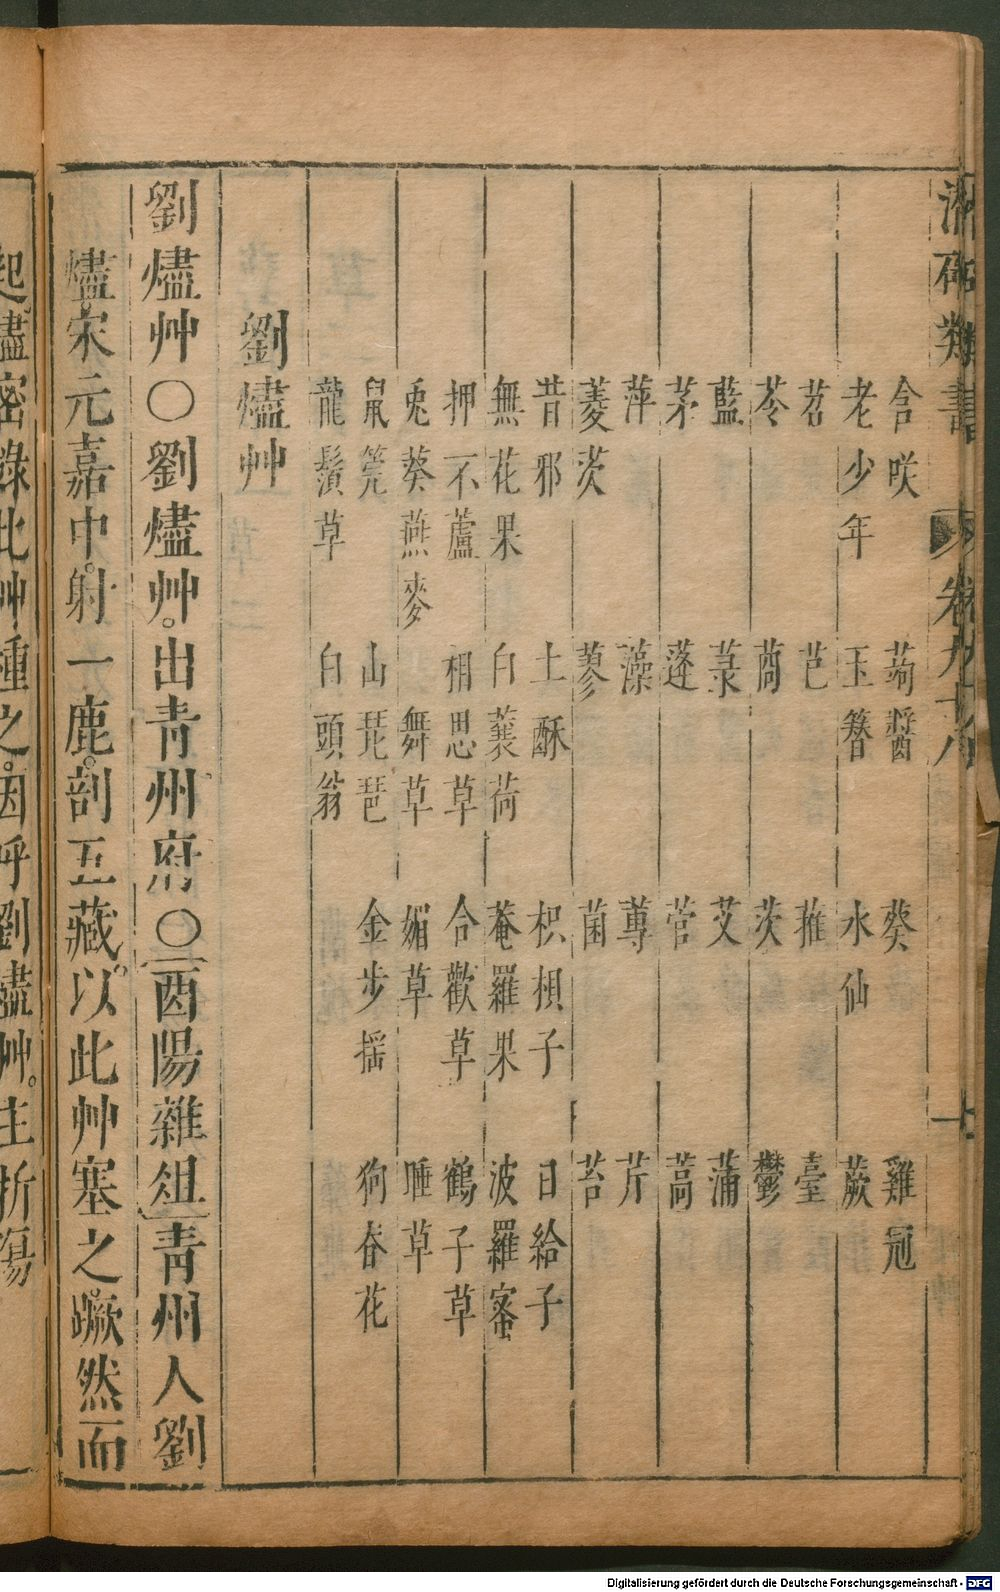 卷九十八
含咲 蒟醬 葵 雞冠
老少年 玉簪 水仙 蕨
苕 芑 蓷 臺
苓 茼 茨 鬱
藍 菉 艾 蒲
茅 蓬 菅 蒿
萍 藻 蓴 芹
菱茨 蓼 菌 苔
昔邪 土酥 枳椇子 日給子
無花果 白蘘荷 菴羅果 波羅蜜
押不蘆 相思草 合歡草 鶴子草
兎葵燕麥 舞草 媚草 睡草
鼠莞 山琵琶 金步搖 狗舂花
龍鬚草 白頭翁
劉燼艸
劉燼艸〇劉燼艸。出青州府〇酉陽雜俎青州人劉
燼。宋元嘉中。射一鹿。剖五藏。以此艸塞之。蹶然而
起。燼密錄此艸種之。因呼劉燼艸。主折傷
Digitalisierung gefördert durch die Deutsche Forschungsgemeinschaft - DFG